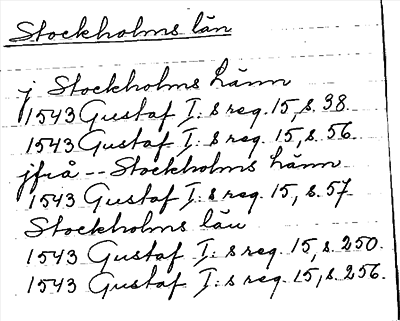 Stockholms län
j Stockholms hänn
1543 Gustaf I:s reg. 15, s. 38.
1543 Gustaf I:s reg. 15, s. 56.
jfrå -- Stockholms hänn
1543 Gustaf I:s reg. 15, s. 57
Stockholms län
1543 Gustaf I:s reg. 15, s. 250.
1543 Gustaf I:s reg. 15, s. 256.